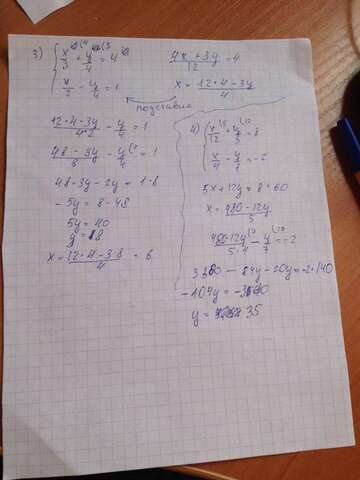 3) { x/3 + y/4 = 4
x/2 - y/4 = 1
4x + 3y / 12 = 4
x = 12·4-3y / 4
подставил
12·4-3y / 4·2 - y/4 = 1
48-3y / 8 - y/4 = 1
48-3y-2y = 1·8
-5y = 8-48
5y = 40
y = 8
x = 12·4-3·8 / 4 = 6
4) { x/12 + y/5 = 8
x/4 - y/7 = -2
5x + 12y = 8·60
x = 480-12y / 5
480-12y / 5·4 - y/7 = -2
3360 - 84y - 20y = -2·140
-104y = -3640
y = 35